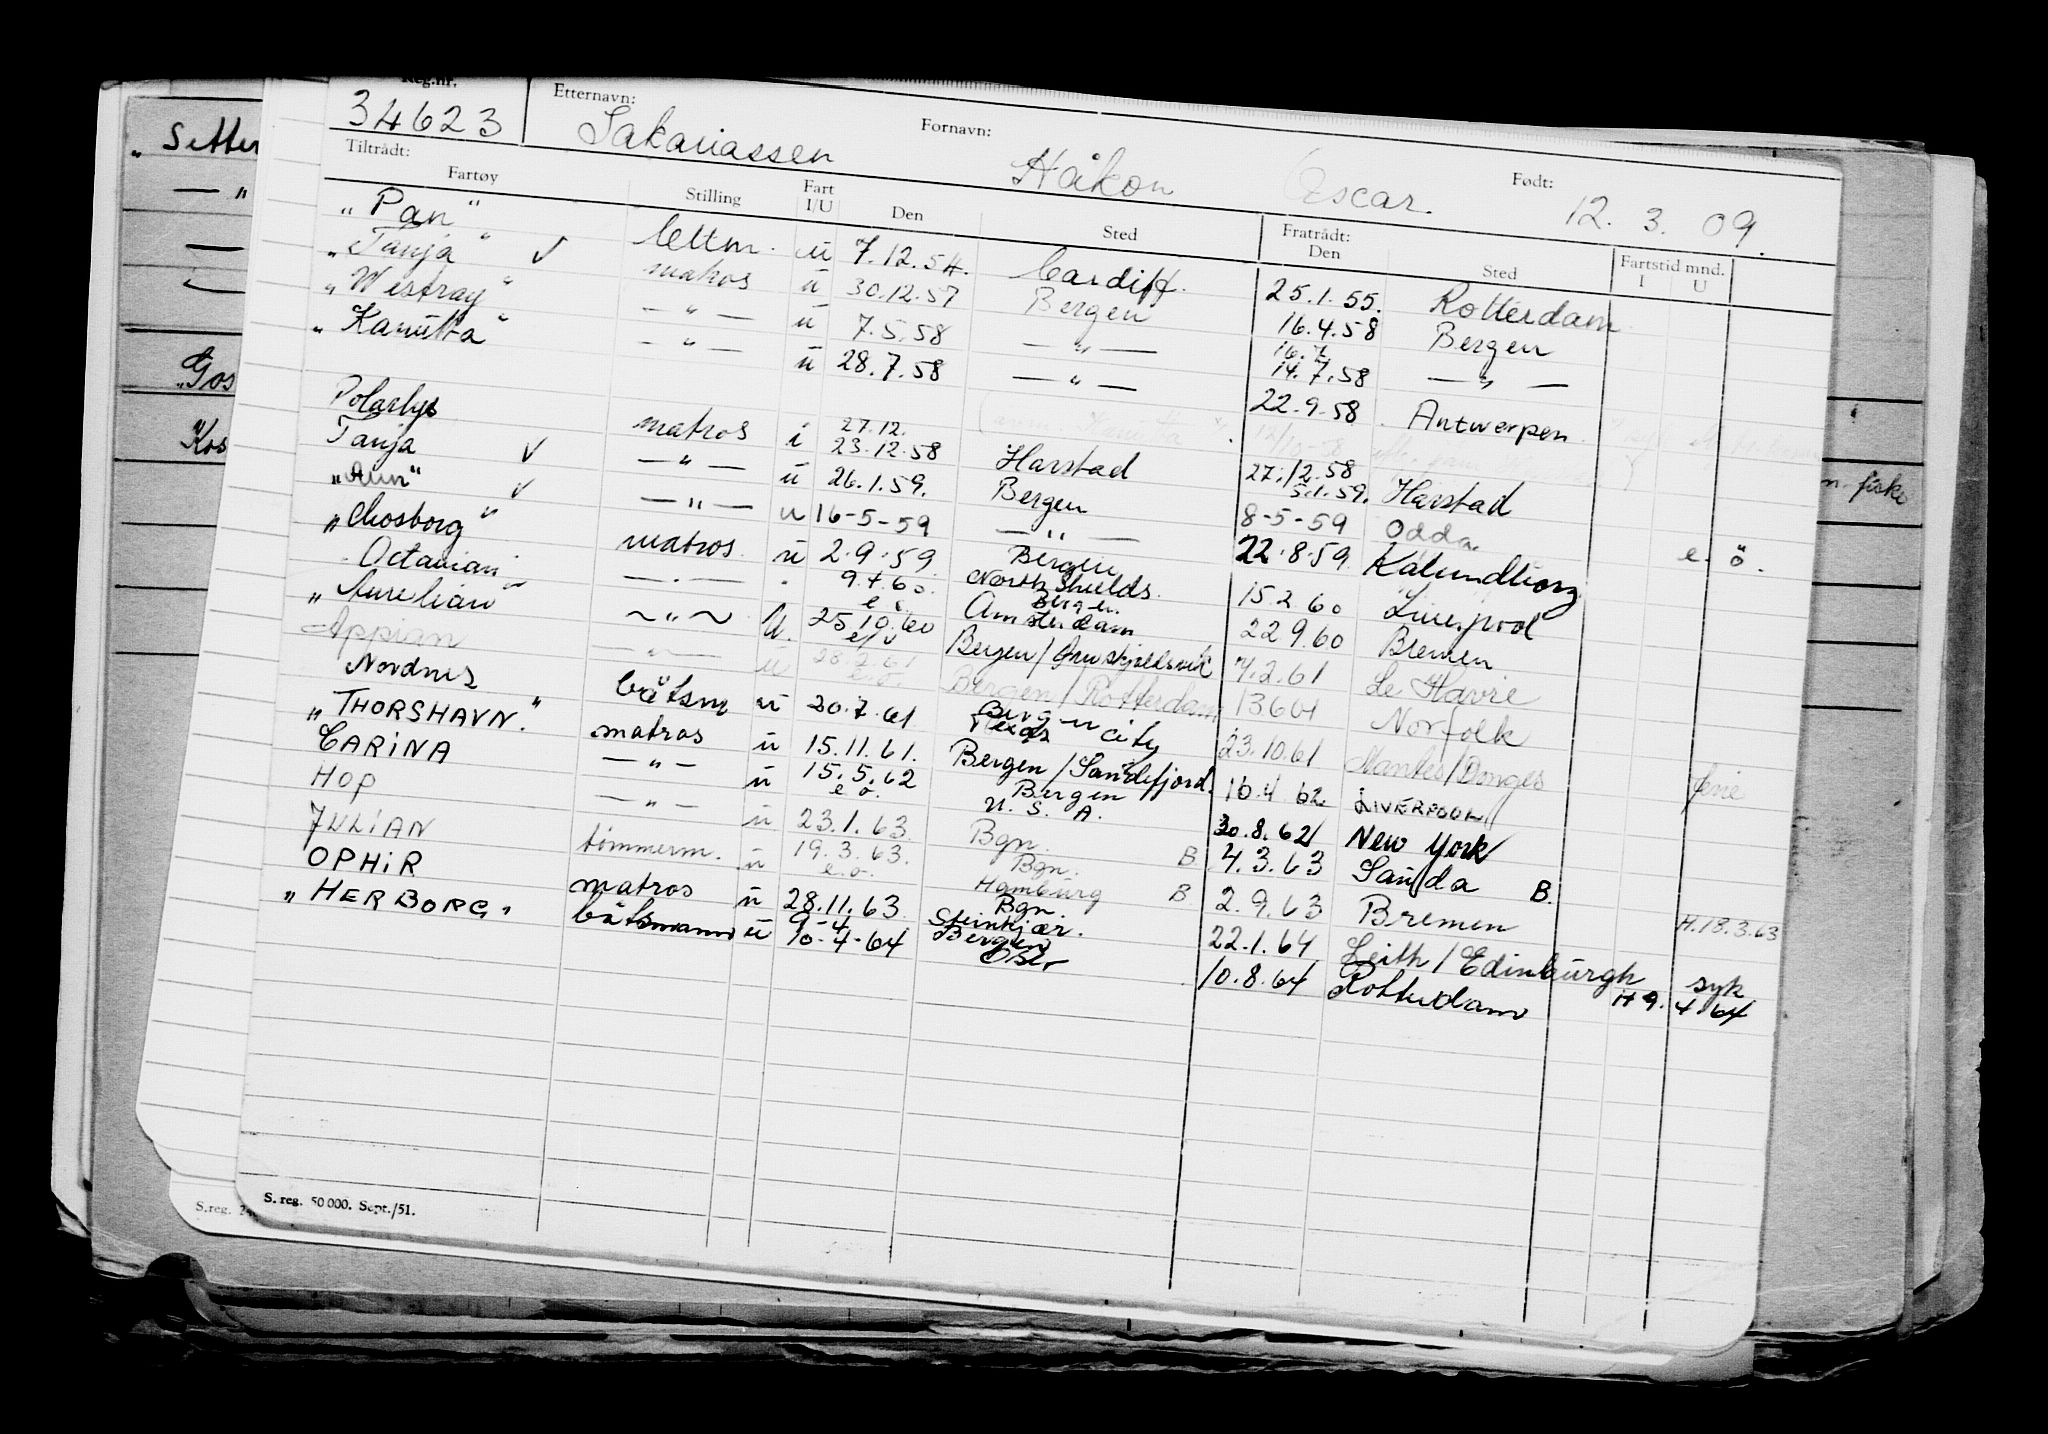 Reg.nr. Etternavn: Fornavn: Født:
34623 Sakariassen Håkon Oscar. 12. 3. 09.
Tiltrådt: Fratrådt: Fartstid mnd.
Fartøy Stilling Fart I/U Den Sted Den Sted I U
"Pan" lettm. u 7.12.54. Cardiff. 25.1.55. Rotterdam
"Tanja" √ matros u 30.12.57 Bergen 16.4.58 Bergen
"Westray" — " — u 7.5.58 — " — 16.7. 14.7.58 — " —
"Kanutta" — " — u 28.7.58 — " — 22.9.58 Antwerpen
Polarlys matros i 27.12. 23.12.58 Harstad 27.12.58 Harstad
Tanja √ — " — u 26.1.59. Bergen 5.1.59. 8-5-59 Odda
"Aun" √ — " — u 16-5-59 — " — 22.8.59 Kalundborg e. ö.
"Mosborg" matros u 2.9.59 Bergen 15.2.60 Liverpool
Octavian — " — 9.4.60. e. o. North Shields. Bergen 22.9.60 Bremen
"Aurelian" ~ " ~ U. 25.10.60 e/o Amsterdam Bergen/ 7.2.61 Le Havre
Appian — " — u 28.2.61 e.o. Bergen/Rotterdam 13.6.61 Norfolk
Nordnes båtsm u 20.7.61 Bergen city 23.10.61 Nantes/Donges ferie
"THORSHAVN." matros u 15.11.61. Bergen/Sandefjord. 16.4.62 LIVERPOOL
CARINA — " — u 15.5.62 e.o. Bergen U.S.A. 30.8.62 New York
HOP — " — u 23.1.63. Bgn. B 4.3.63 Sauda B.
JULIAN tømmerm. u 19.3.63. e.o. Bgn. Hamburg B 2.9.63 Bremen H.18.3.63
OPHIR matros u 28.11.63 Bgn. 22.1.64 Leith/Edinburgh syk
"HERBORG" båtsmann u 9-4 10-4-64 Steinkjær. Bergen Oslo 10.8.64 Rotterdam H 9. 4. 64
S. reg. 50 000. Sept./51.
S.reg.
"Setter
— "
"Gos
"Kos
n. fiske